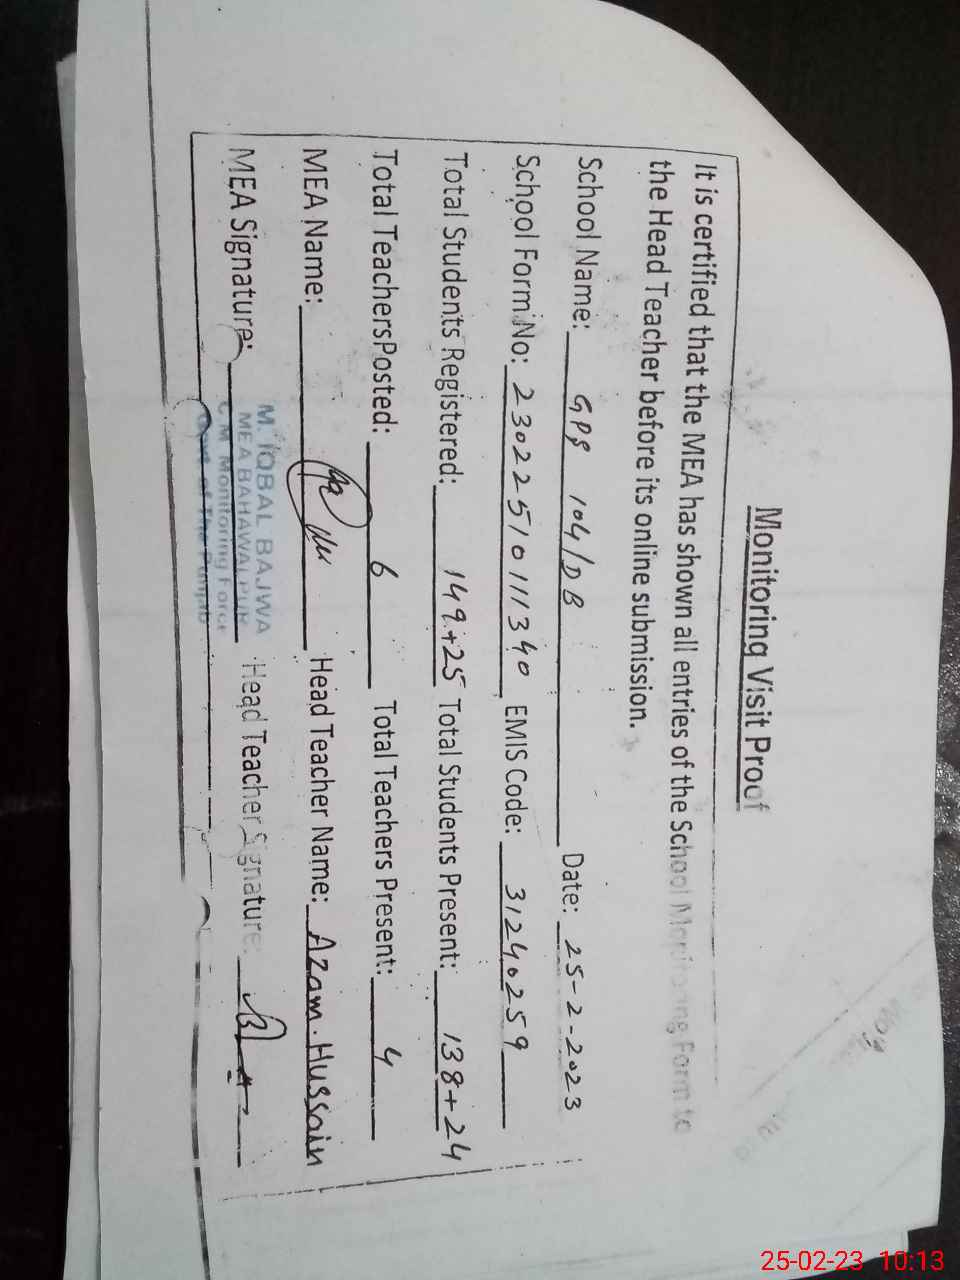 Monitoring Visit Proof
It is certified that the MEA has shown all entries of the School Monitoring Form to
the Head Teacher before its online submission.
School Name: GPS 104/DB Date: 25-2-2023
School Form No: 230225101111340 EMIS Code: 31240259
Total Students Registered: 149+25 Total Students Present: 138+24
Total TeachersPosted: 6 Total Teachers Present: 4
MEA Name: Head Teacher Name: Azam Hussain
MEA Signature: Head Teacher Signature:
M. IQBAL BAJWA
MEA BAHAWALPUR
C.M. Monitoring Force
Govt of The Punjab
25-02-23 10:13